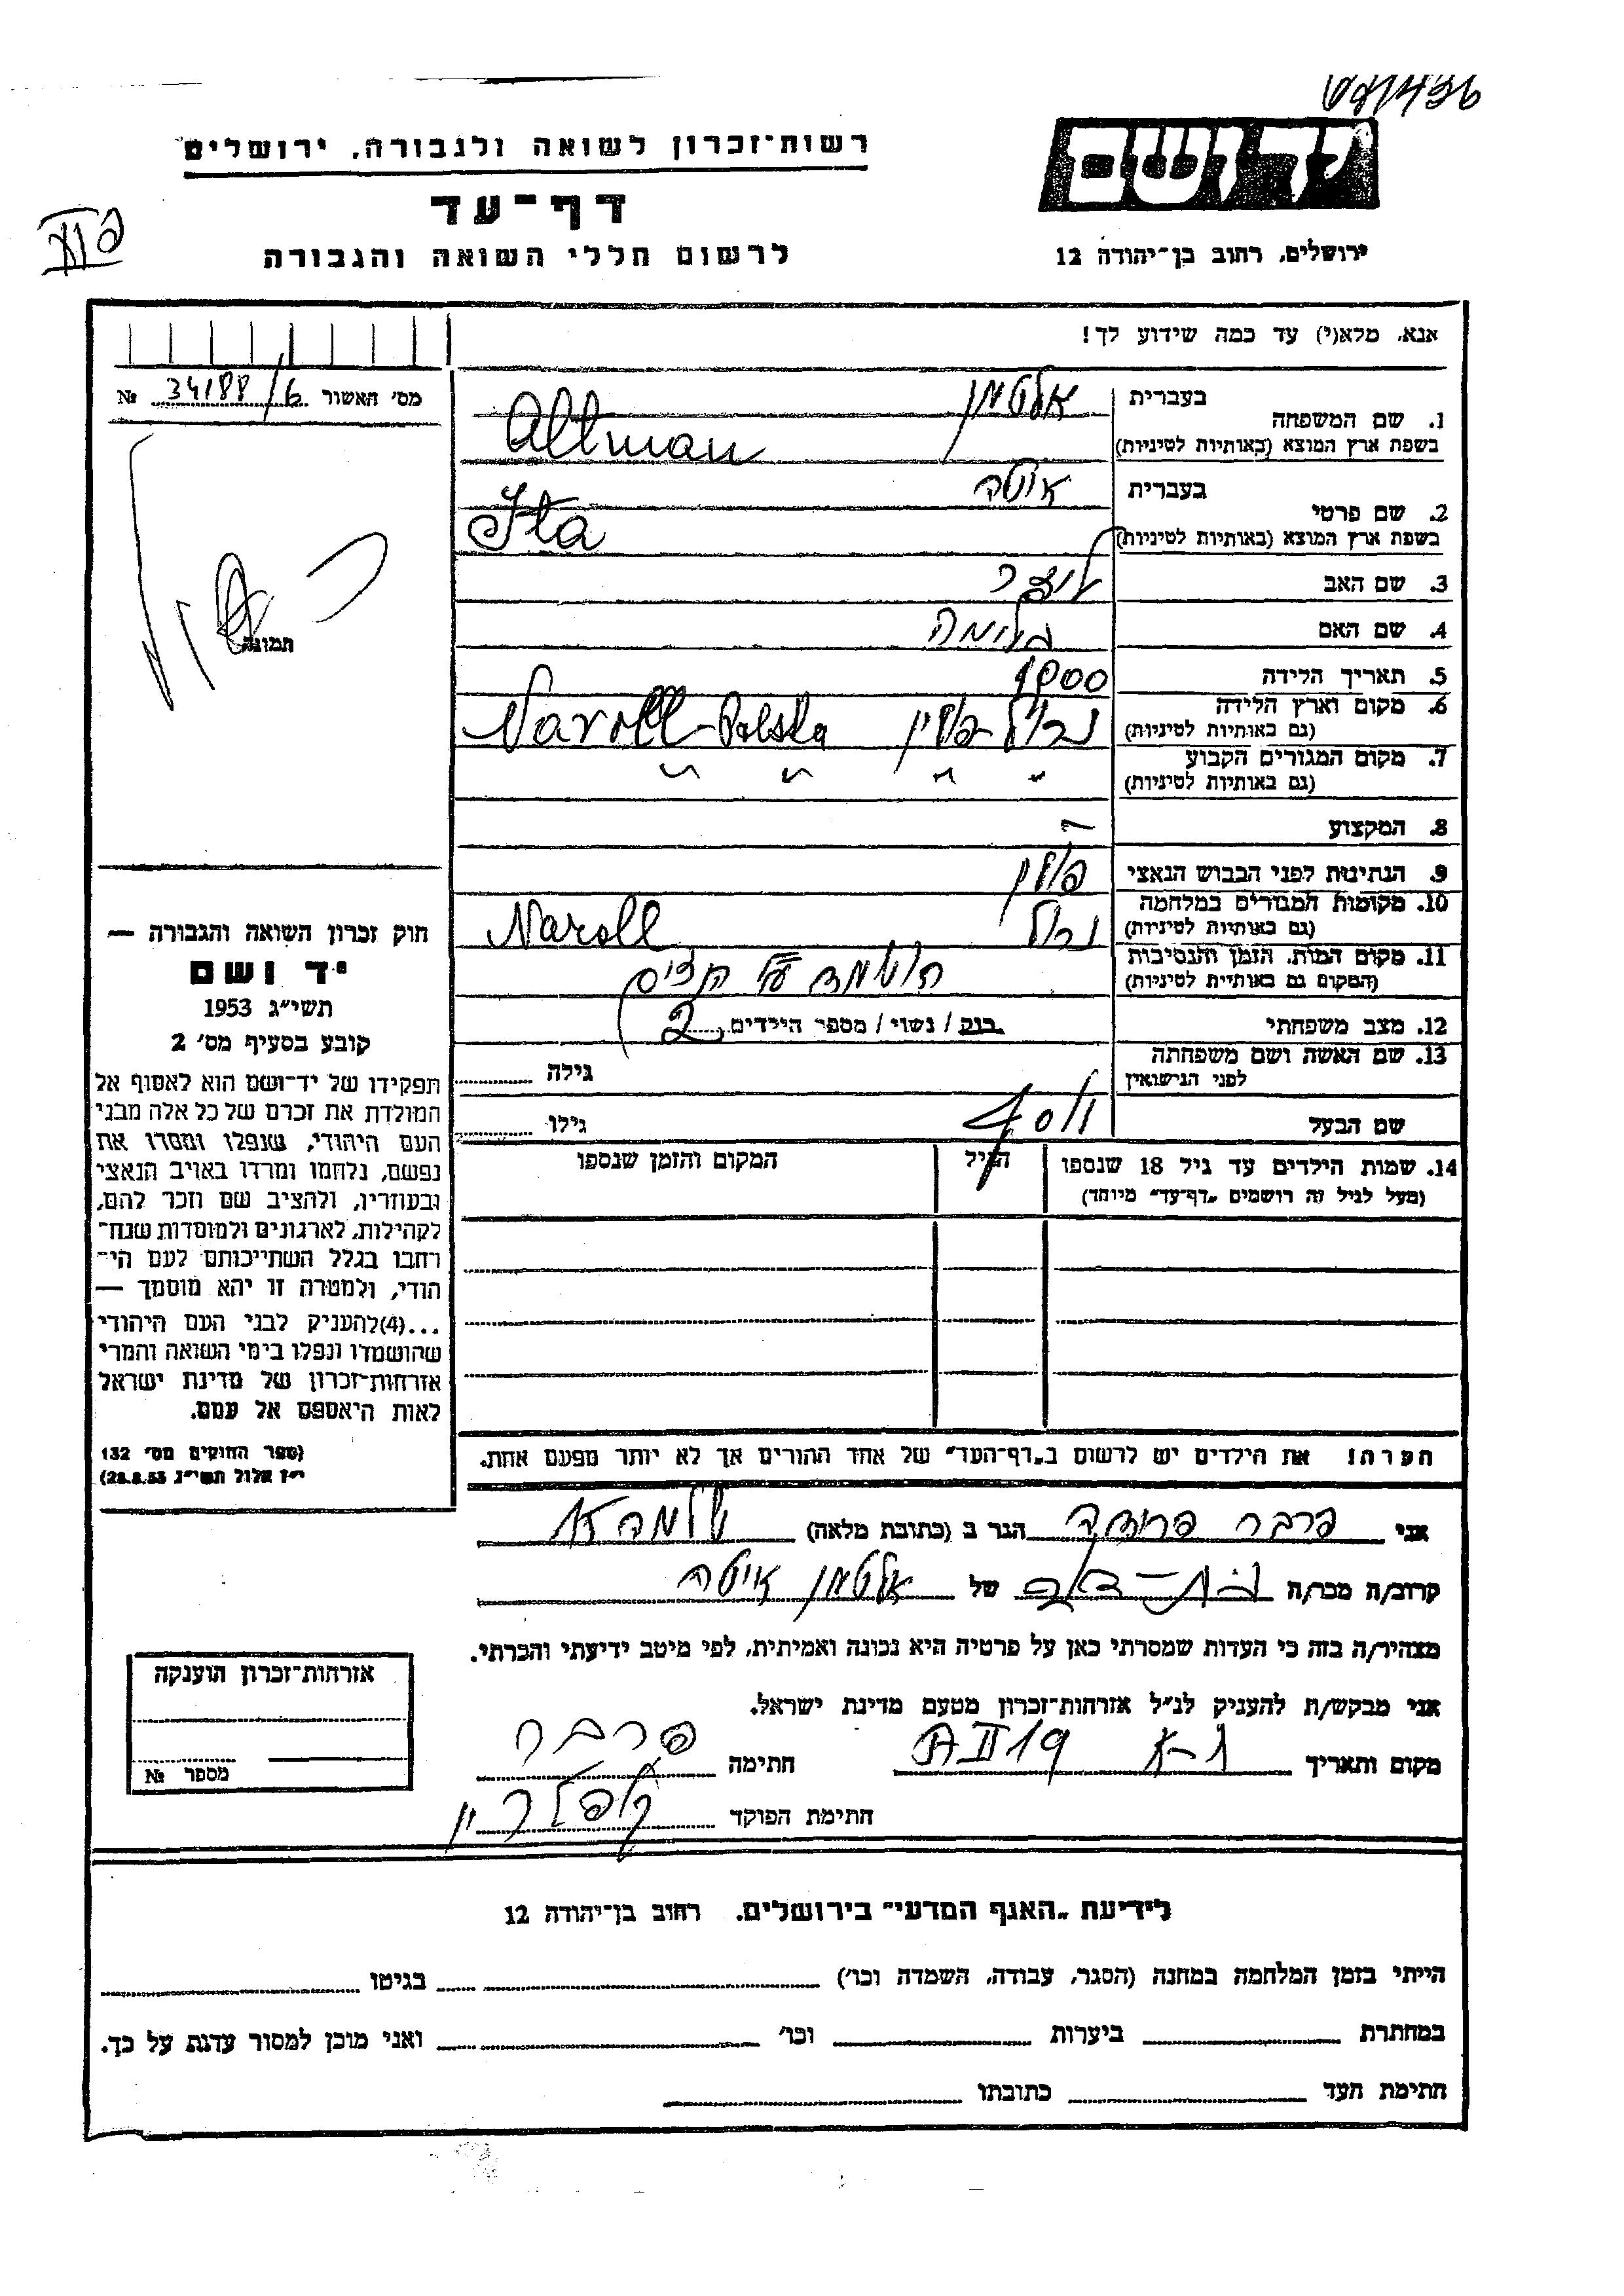 יד ושם
רשות־זכרון לשואה ולגבורה, ירושלים
דף־עד
ירושלים, רחוב בן־יהודה 12
לרשום חללי השואה והגבורה
אנא, מלא(י) עד כמה שידוע לך!
מס׳ האשור 34188/6 №
תמונה
1. שם המשפחה
בעברית אלטמן
בשפת ארץ המוצא (באותיות לטיניות) Altman
2. שם פרטי
בעברית איטה
בשפת ארץ המוצא (באותיות לטיניות) Ita
3. שם האב
4. שם האם
5. תאריך הלידה 1900
6. מקום וארץ הלידה
(גם באותיות לטיניות) נרול - פולין Naroll - Polska
7. מקום המגורים הקבוע
(גם באותיות לטיניות) " " " "
8. המקצוע -
9. הנתינות לפני הכבוש הנאצי פולין
10. מקומות המגורים במלחמה
(גם באותיות לטיניות) נרול Naroll
11. מקום המות, הזמן והנסיבות
(המקום גם באותיות לטיניות)
12. מצב משפחתי רווק / נשוי / מספר הילדים 2
13. שם האשה ושם משפחתה
לפני הנישואין גילה
שם הבעל יוסף גילו
14. שמות הילדים עד גיל 18 שנספו הגיל המקום והזמן שנספו
(מעל לגיל זה רושמים „דף־עד״ מיוחד)
הערה! את הילדים יש לרשום ב„דף־העד״ של אחד ההורים אך לא יותר מפעם אחת.
חוק זכרון השואה והגבורה —
יד ושם
תשי״ג 1953
קובע בסעיף מס׳ 2
תפקידו של יד־ושם הוא לאסוף אל
המולדת את זכרם של כל אלה מבני
העם היהודי, שנפלו ומסרו את
נפשם, נלחמו ומרדו באויב הנאצי
ובעוזריו, ולהציב שם וזכר להם,
לקהילות, לארגונים ולמוסדות שנח־
רבו בגלל השתייכותם לעם הי־
הודי, ולמטרה זו יהא מוסמך —
...(4) להעניק לבני העם היהודי
שהושמדו ונפלו בימי השואה והמרי
אזרחות־זכרון של מדינת ישראל
לאות היאספם אל עמם.
(ספר החוקים מס׳ 132
י״ז אלול תשי״ג 28.8.53)
אני פרבר פרידה הגר ב (כתובת מלאה)
קרוב/ה מכר/ה בת-דוד של אלטמן איטה
מצהיר/ה בזה כי העדות שמסרתי כאן על פרטיה היא נכונה ואמיתית, לפי מיטב ידיעתי והכרתי.
אני מבקש/ת להעניק לנ״ל אזרחות־זכרון מטעם מדינת ישראל.
מקום ותאריך חתימה פרבר
חתימת הפוקד
אזרחות־זכרון הוענקה
מספר №
לידיעת „האגף המדעי״ בירושלים, רחוב בן־יהודה 12
הייתי בזמן המלחמה במחנה (הסגר, עבודה, השמדה וכו׳) בגיטו
במחתרת ביערות וכו׳ ואני מוכן למסור עדות על כך.
חתימת העד כתובתו